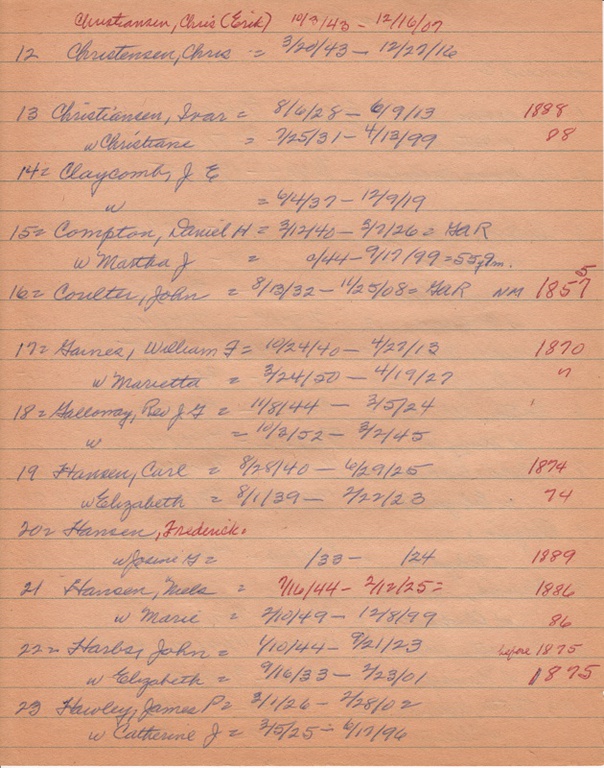 Christiansen, Chris (Erik) 10/3/43 - 12/16/07
12 Christensen, Chris = 3/20/43 - 12/27/16
13 Christiansen, Ivar = 8/6/28 - 6/9/13 1888
w Christiane = 7/25/31 - 4/13/99 88
14 = Claycomb, J E
w = 6/4/37 - 12/9/19
15 = Compton, Daniel H = 3/12/40 - 3/7/26 = GAR
w Martha J = /44 - 9/17/99 = 55y9m.
16 = Coulter, John = 8/13/32 - 11/25/08 = GAR NM 1857 5
17 = Gaines, William F = 10/24/40 - 4/27/13 1870
w Marietta = 3/24/50 - 4/19/27 "
18 = Galloway, Rev J F = 11/8/44 - 3/5/24
w = 10/3/52 - 3/2/45
19 Hansen, Carl = 8/28/40 - 6/29/25 1874
w Elizabeth = 8/1/39 - 2/22/23 74
20 = Hansen, Frederick.
w = /33 - /24 1889
21 Hansen, Nels = 7/16/44 - 2/12/25 = 1886
w Marie = 2/10/49 - 12/8/99 86
22 = Harbs, John = 1/10/44 - 9/21/23 before 1875
w Elizabeth = 9/16/33 - 2/23/01 1875
23 Hawley, James P = 3/1/26 - 2/28/02
w Catherine J = 3/5/25 - 6/17/96